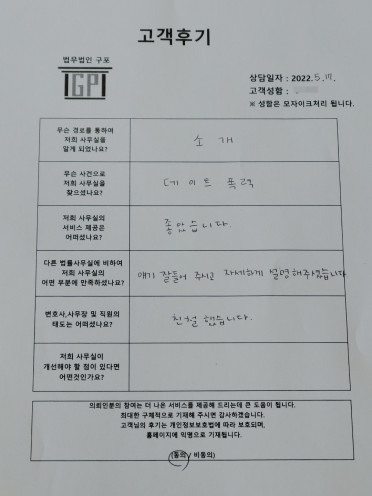 고객후기
법무법인 구포
GP
상담일자 : 2022. 5. 17.
고객성함 :
※ 성함은 모자이크처리 됩니다.
무슨 경로를 통하여
저희 사무실을
알게 되었나요?
소개
무슨 사건으로
저희 사무실을
찾으셨나요?
데이트 폭력
저희 사무실의
서비스 제공은
어떠셨나요?
좋았습니다.
다른 법률사무실에 비하여
저희 사무실의
어떤 부분에 만족하셨나요?
얘기 잘들어 주시고 자세하게 설명해주셨습니다
변호사,사무장 및 직원의
태도는 어떠셨나요?
친절했습니다.
저희 사무실이
개선해야 할 점이 있다면
어떤것인가요?
의뢰인분의 참여는 더 나은 서비스를 제공해 드리는데 큰 도움이 됩니다.
최대한 구체적으로 기재해 주시면 감사하겠습니다.
고객님의 후기는 개인정보보호법에 따라 보호되며,
홈페이지에 익명으로 기재됩니다.
(동의 / 비동의)